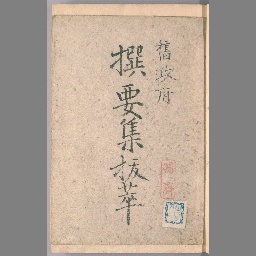 舊政府
撰要集抜萃